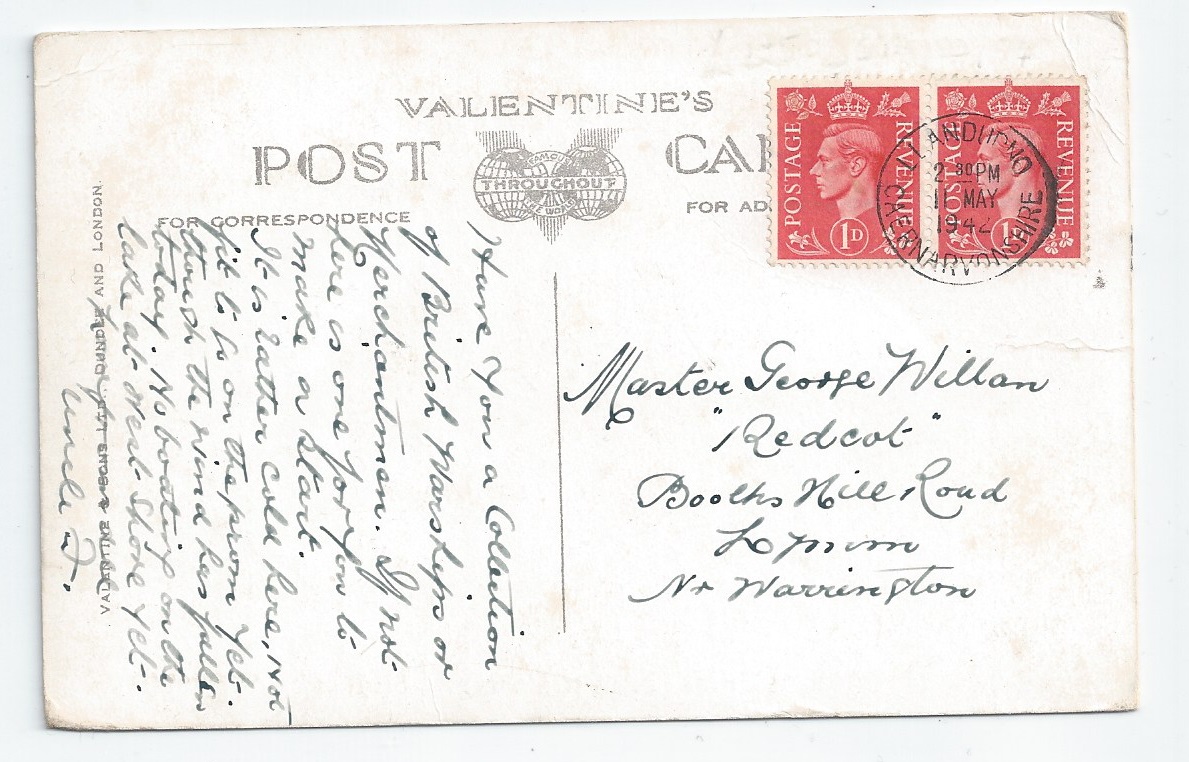 VALENTINE'S
POST CA
FAMOUS
THROUGHOUT
THE WORLD
FOR CORRESPONDENCE
FOR AD
POSTAGE REVENUE
1D
POSTAGE REVENUE
1
LLANDUDNO
2-30PM
11 MAY
1942
CAERNARVONSHIRE
Have you a Collection
of British Warships or
Merchantmen. If not
here is one for you to
make a start.
It is rather cold here, not
fit to be on the prom yet.
though the wind has fallen
today. No boating on the
lake at West Shore yet.
Uncle F.
VALENTINE & SONS LTD., DUNDEE AND LONDON.
Master George Willan
"Redcot"
Booths Hill Road
Lymm
Nr Warrington